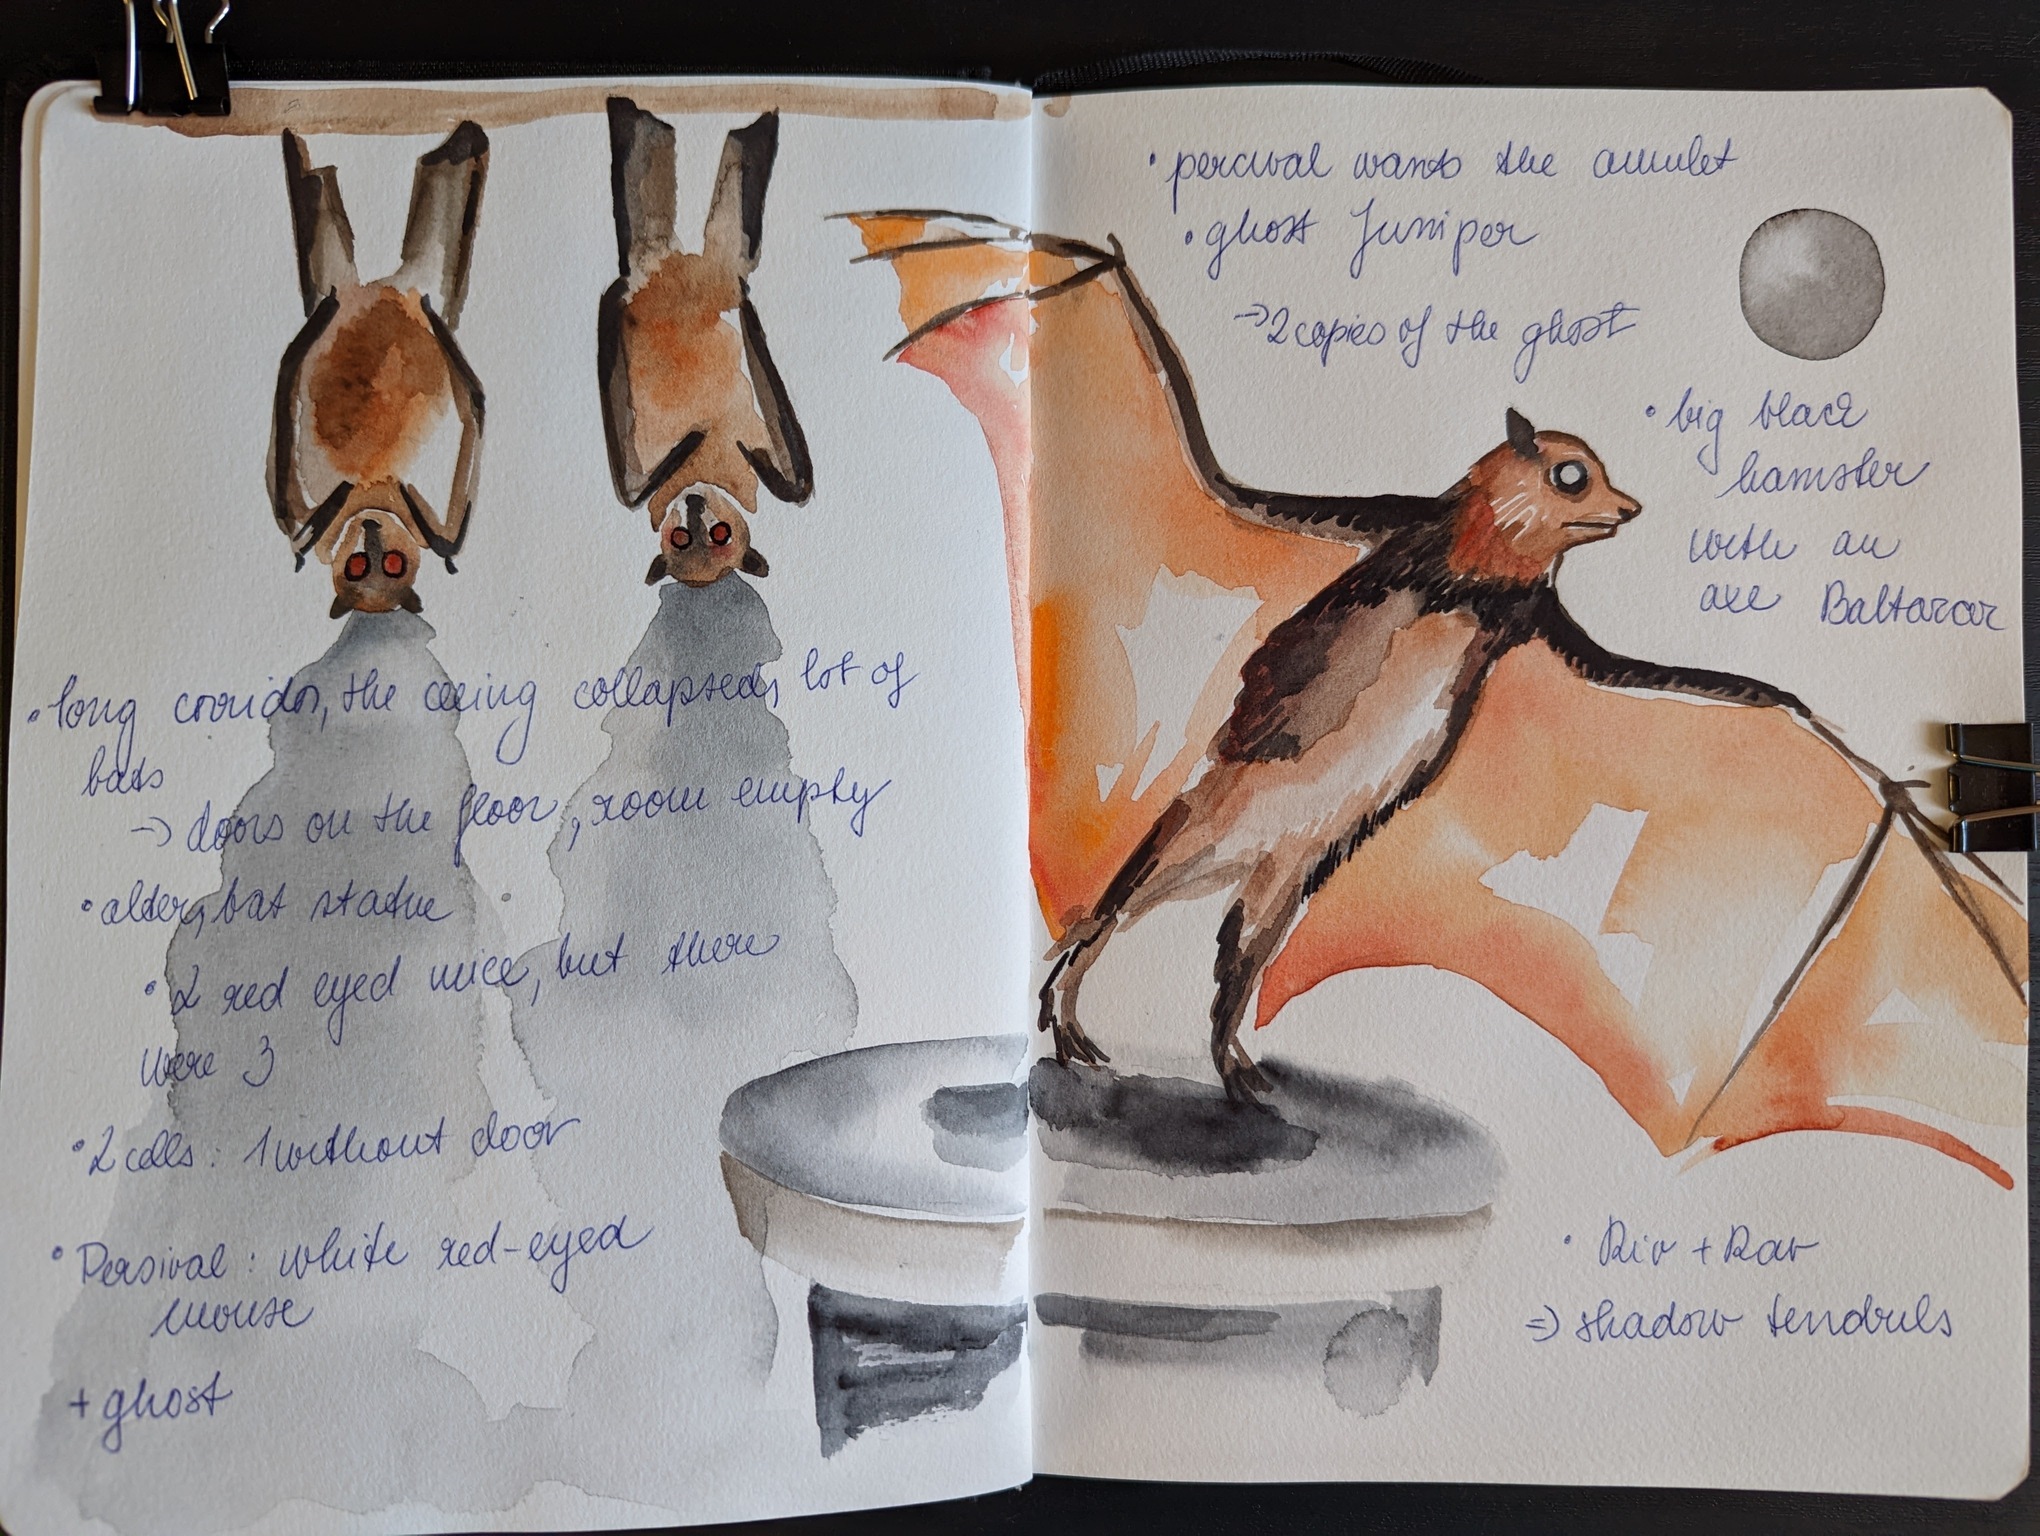 • long corridor, the ceeing collapsed, lot of
bats
→ doors on the floor, room empty
• alder, bat statue
• 2 red eyed mice, but there
were 3
• 2 cells: 1 without door
• Persival: white red-eyed
mouse
+ ghost
• percival wants the amulet
• ghost Juniper
→ 2 copies of the ghost
• big black
hamster
with an
axe Baltazar
• Riv + Rav
⇒ shadow tendruls